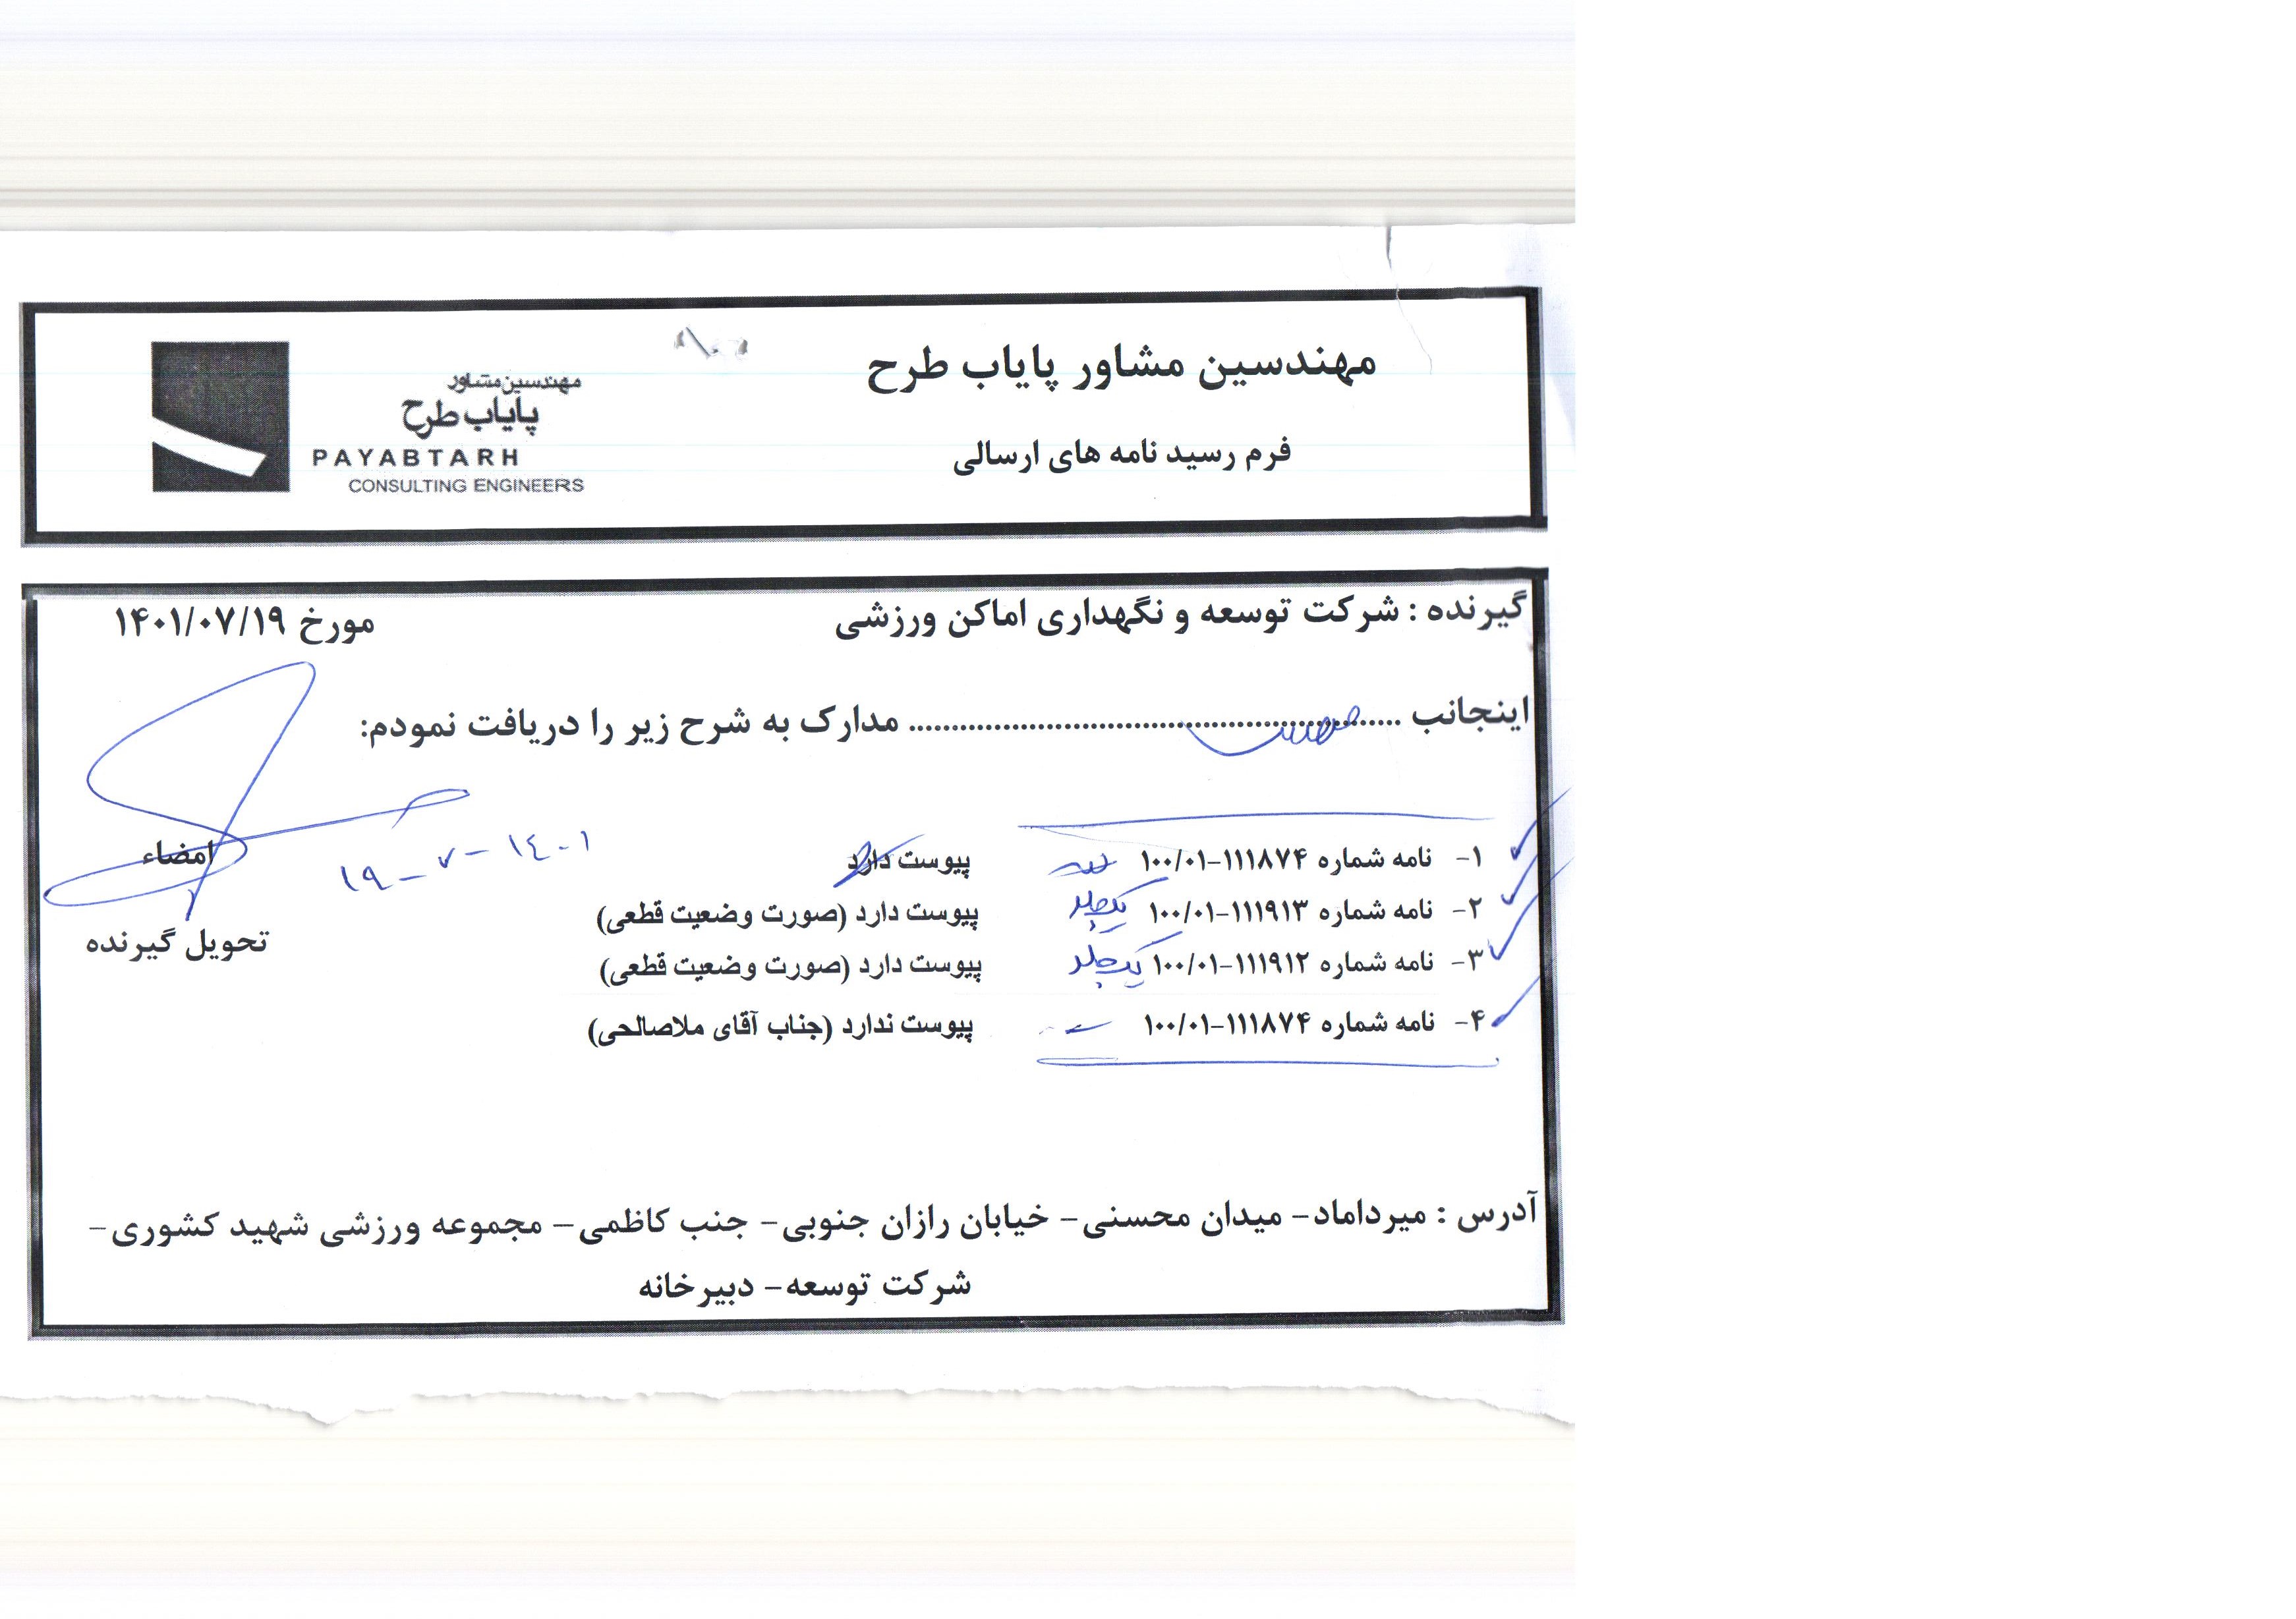 مهندسین مشاور پایاب طرح
فرم رسید نامه های ارسالی
مهندسین مشاور
پایاب طرح
PAYABTARH
CONSULTING ENGINEERS
گیرنده : شرکت توسعه و نگهداری اماکن ورزشی
مورخ ۱۴۰۱/۰۷/۱۹
اینجانب ........................................................ مدارک به شرح زیر را دریافت نمودم:
۱- نامه شماره ۱۱۱۸۷۴-۱۰۰/۰۱ پیوست دارد
۲- نامه شماره ۱۱۱۹۱۳-۱۰۰/۰۱ یکجلد پیوست دارد (صورت وضعیت قطعی)
۳- نامه شماره ۱۱۱۹۱۲-۱۰۰/۰۱ یکجلد پیوست دارد (صورت وضعیت قطعی)
۴- نامه شماره ۱۱۱۸۷۴-۱۰۰/۰۱ پیوست ندارد (جناب آقای ملاصالحی)
۱۹-۷-۱۴۰۱
امضاء
تحویل گیرنده
آدرس : میرداماد- میدان محسنی- خیابان رازان جنوبی- جنب کاظمی- مجموعه ورزشی شهید کشوری-
شرکت توسعه- دبیرخانه